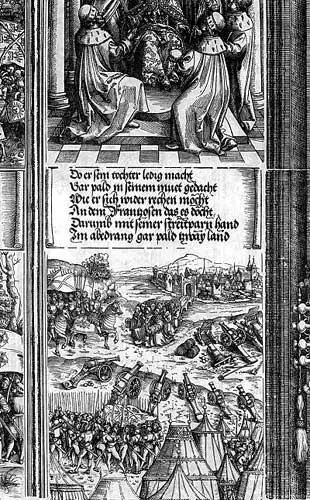 Do er sein tochter ledig macht
Gar pald in seinem muet gedacht
Wie er sich wider rechen möcht
An dem Franzosen das es döcht
Darumb mit seiner streitparn hand
Im abedrang gar pald tzwäy land